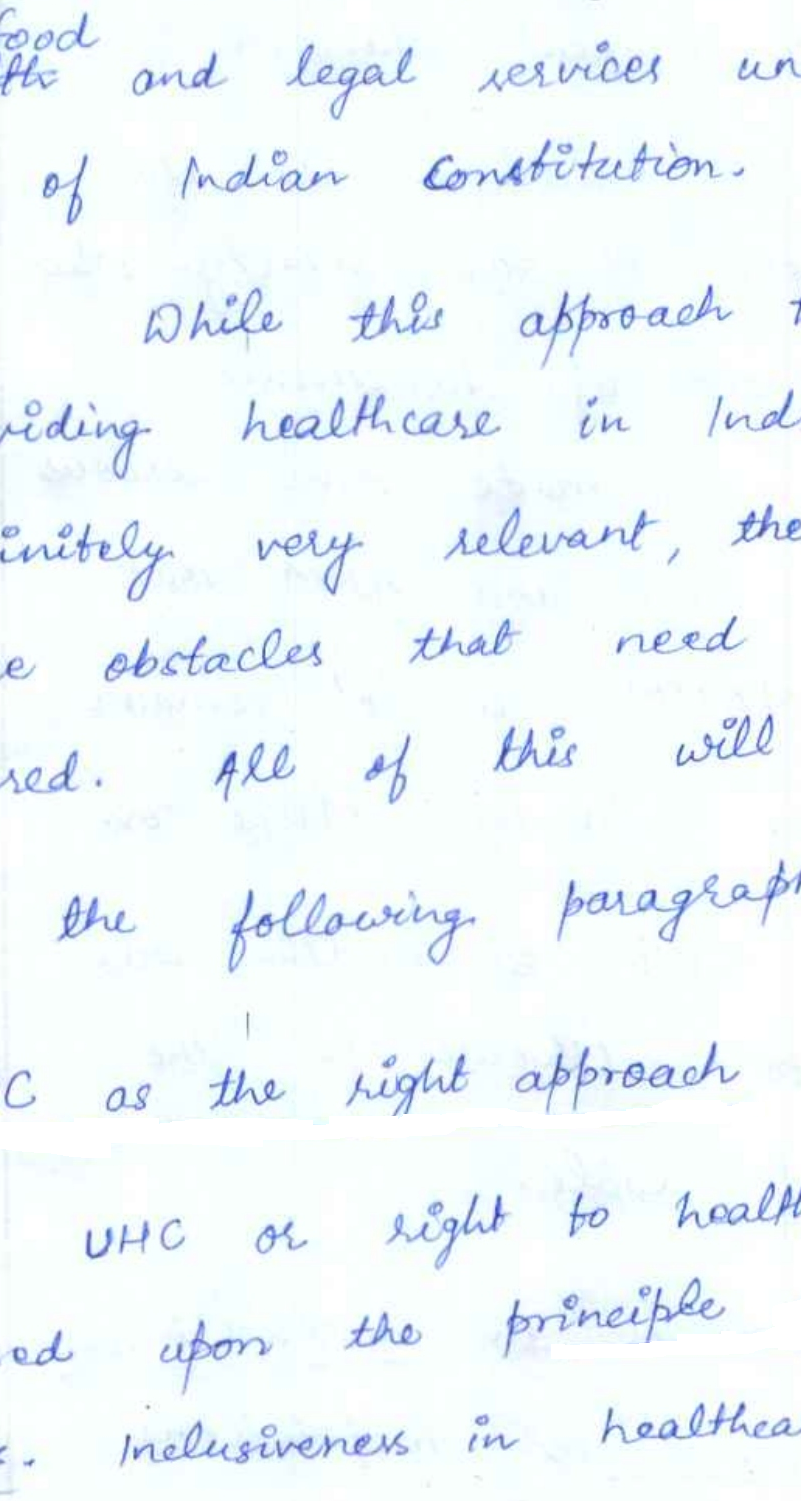 food
and legal services un
of Indian Constitution.
While this approach t
viding healthcare in Ind
initely very relevant, the
e obstacles that need
red. All of this will
the following paragraph
C as the right approach
UHC or right to health
ed upon the principle
Inclusiveness in healthca